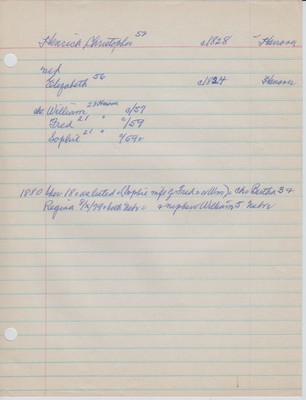 Henrich Christopher 52 c/1828 Hanover
mrs
Elizabeth 56 c/1824 Hanover
ch. William 23 Hanover c/57
Fred 21 " c/59
Sophie 21 " c/59
1880 18 as listed (Sophie wife of Fred ch Bertha 3 +
Regina 8/2/79 both Nebr + nephew William 5 Nebr